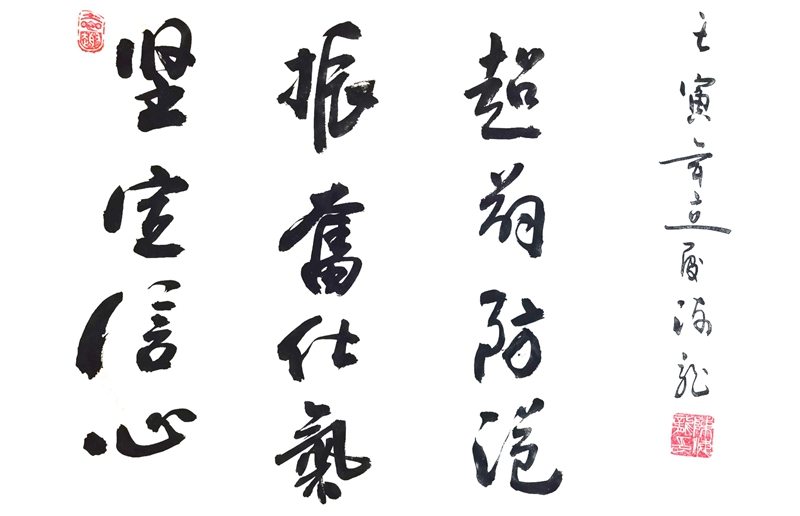 坚定信心
振奮仕氣
超前防范
壬寅年立夏海龙